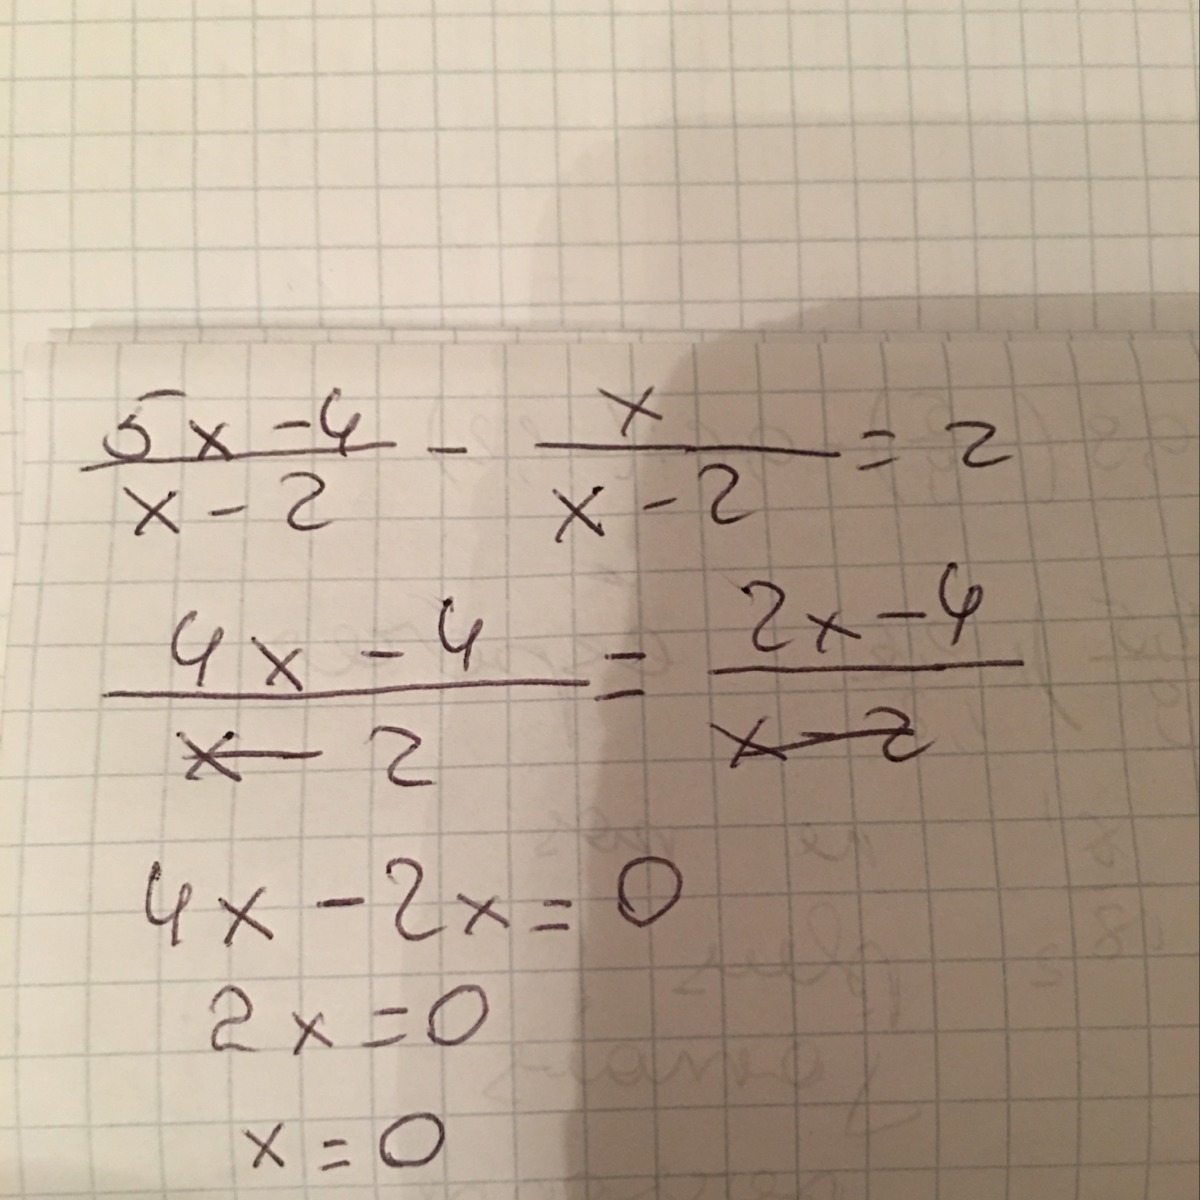 5x-4/x-2 - x/x-2 = 2
4x-4/x-2 = 2x-4/x-2
4x-2x=0
2x=0
x=0